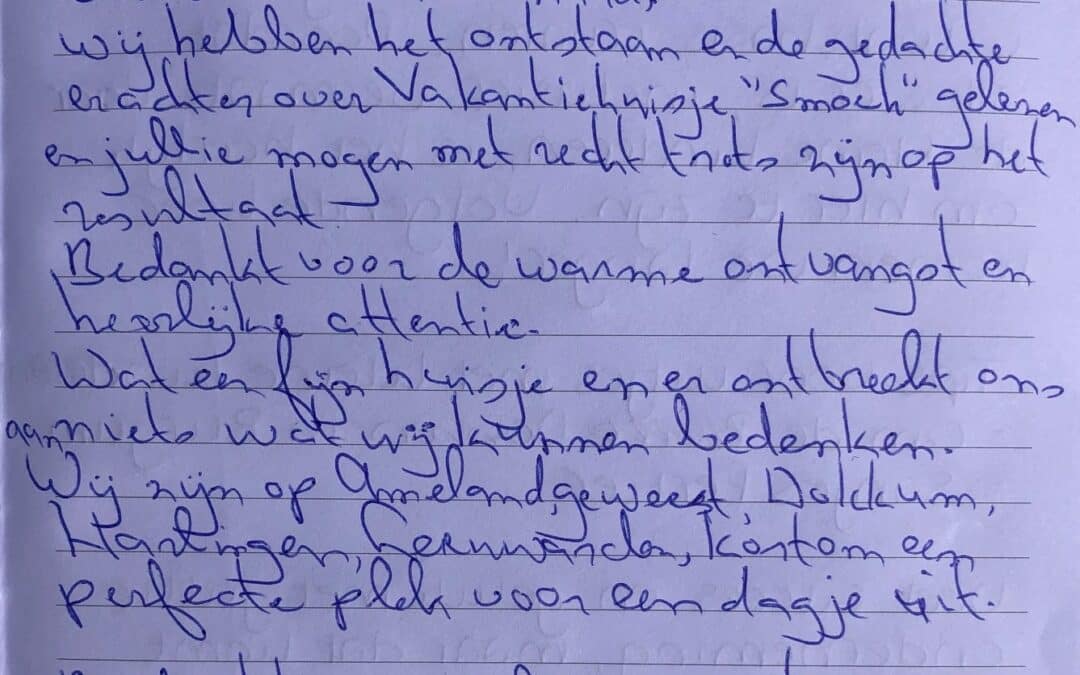 wij hebben het ontstaan en de gedachte
erachter over Vakantiehuisje "Smoek" gelezen
en jullie mogen met recht trots zijn op het
resultaat
Bedankt voor de warme ontvangst en
heerlijke attentie.
Wat een fijn huisje en er ontbreekt ons
aan niets wat wij kunnen bedenken.
Wij zijn op Ameland geweest, Dokkum,
Harlingen, Leeuwarden, kortom een
perfecte plek voor een dagje uit.